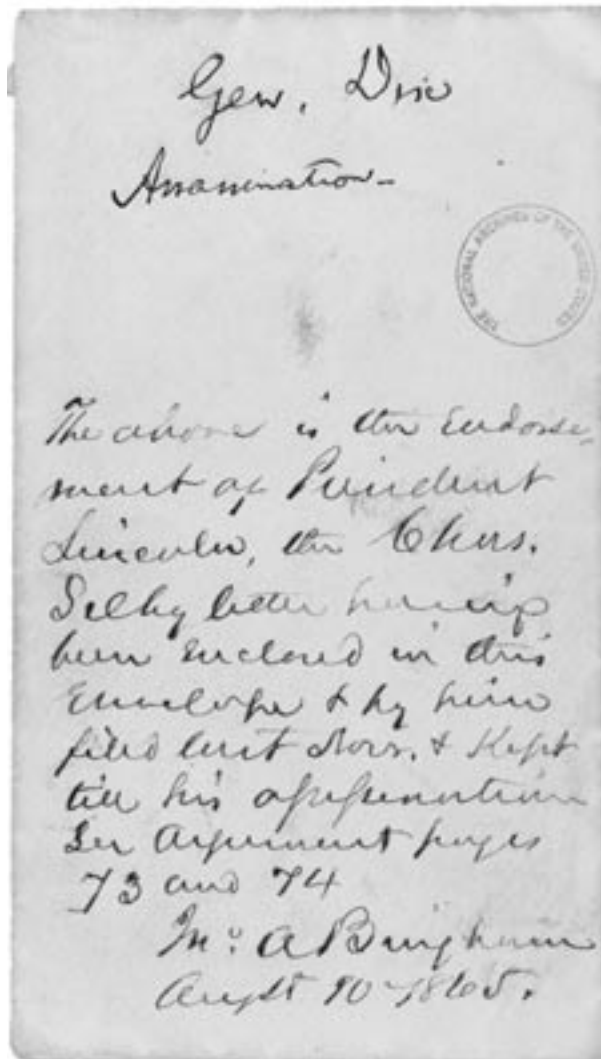 Gen. Dix
Assassination–
THE NATIONAL ARCHIVES OF THE UNITED STATES
The above is the Endorse-
ment of President
Lincoln, the Chas.
Selby letter having
been enclosed in this
Envelope & by him
filed last Novr. & Kept
till his assassination
See Argument pages
73 and 74
Jno. A Bingham
Augst 10–1865.